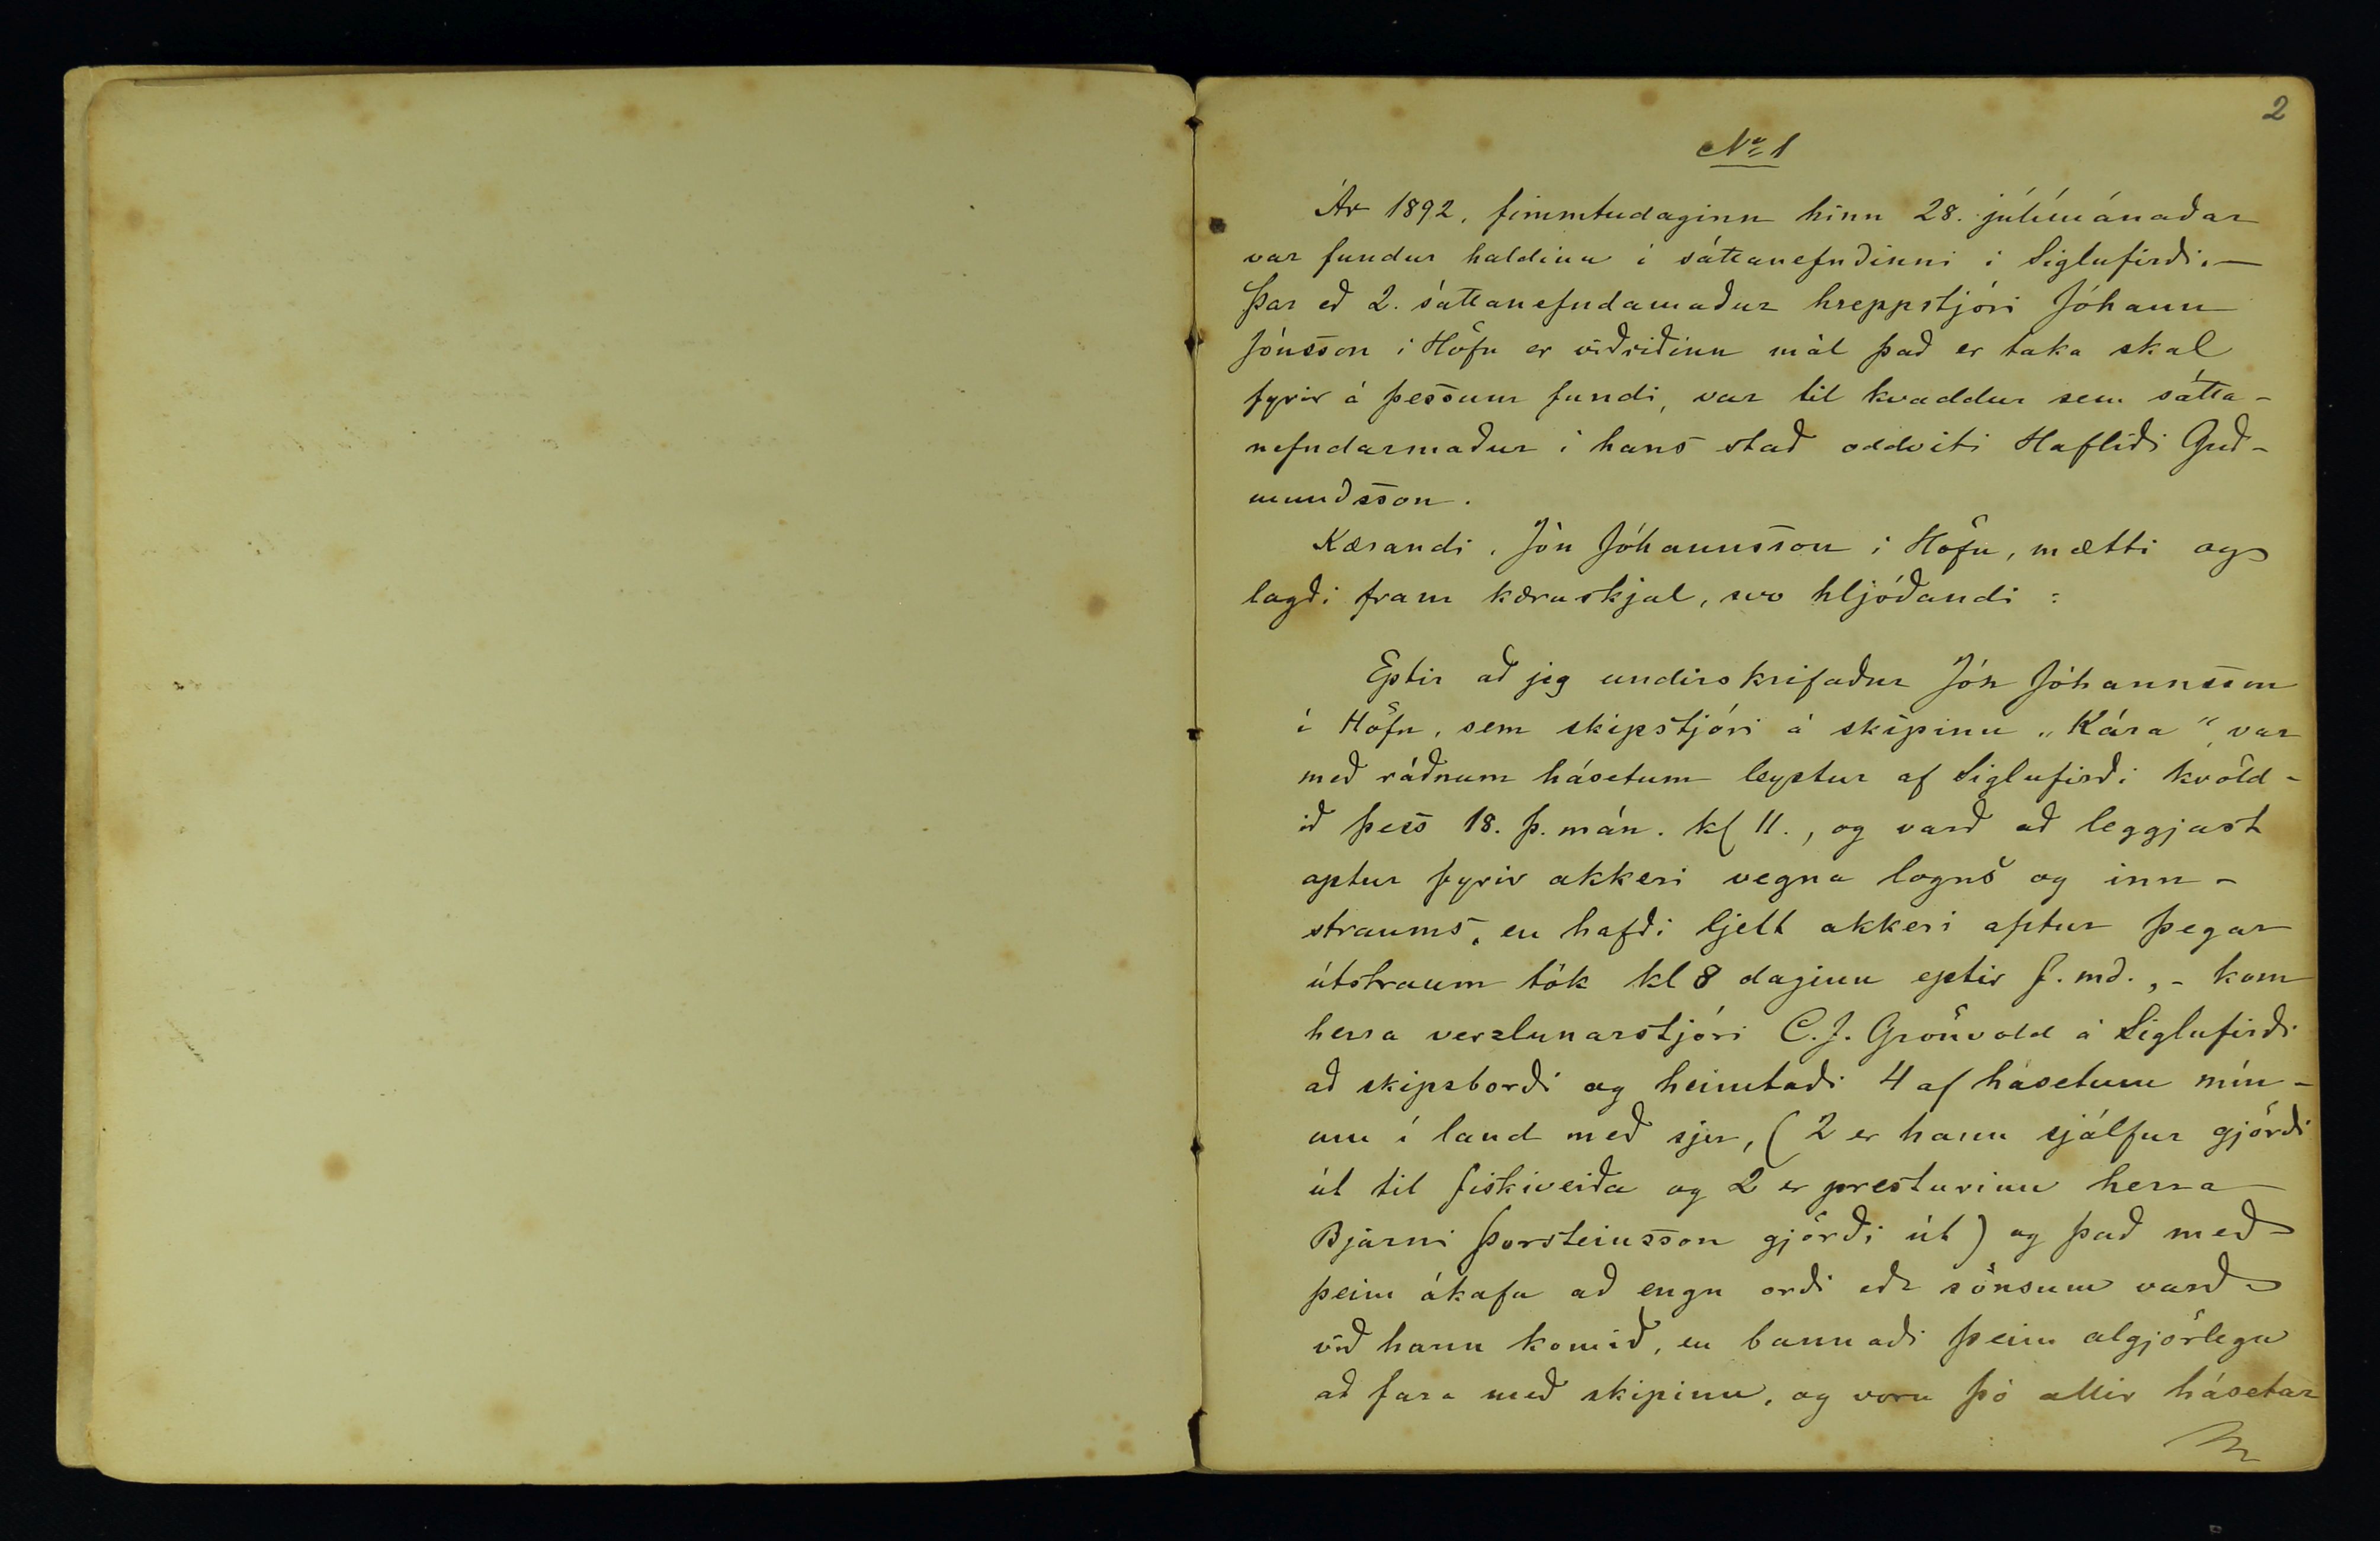 2
No 1
Ár 1892, fimmtudaginn hinn 28. júlímánaðar
var fundur haldinn í sáttanefndinni í Siglufirði. —
Þar eð 2. sáttanefndamaður hreppstjóri Jóhann
Jónsson í Höfn er viðriðinn mál það er taka skal
fyrir á þessum fundi, var til kvaddur sem sátta-
nefndarmaður í hans stað oddviti Hafliði Guð-
mundsson.
Kærandi, Jón Jóhannsson í Höfn, mætti og
lagði fram kæruskjal, svo hljóðandi:
Eptir að jeg undirskrifaður Jón Jóhannsson
í Höfn, sem skipstjóri á skipinu „Kára“, var
með ráðnum hásetum leystur af Siglufirði kvöld-
ið þess 18. þ. mán. kl 11., og varð að leggjast
aptur fyrir akkeri vegna logns og inn-
straums, en hafði ljett akkeri aptur þegar
útstraum tók kl 8 daginn eptir f. md., - kom
herra verzlunarstjóri C. J. Grönvold á Siglufirði
að skipsborði og heimtaði 4 af hásetum mín-
um í land með sjer, (2 er hann sjálfur gjörði
út til fiskiveiða og 2 er presturinn herra
Bjarni Þorsteinsson gjörði út) og það með
þeim ákafa að engu orði eða sönsum varð
við hann komið, en bannaði þeim algjörlega
að fara með skipinu, og voru þó allir hásetar